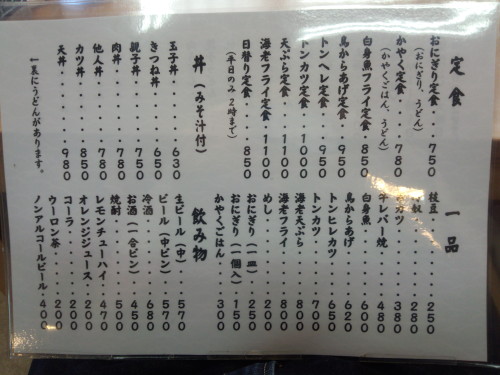 定食
おにぎり定食・・750
(おにぎり、うどん)
かやく定食・・・780
(かやくごはん、うどん)
白身魚フライ定食・850
鳥からあげ定食・・950
トンヘレ定食・・・950
トンカツ定食・・1000
天ぷら定食・・・1100
海老フライ定食・1100
日替り定食・・・850
(平日のみ2時まで)
丼(みそ汁付)
玉子丼・・・・・630
きつね丼・・・・650
親子丼・・・・・750
肉丼・・・・・・780
他人丼・・・・・780
カツ丼・・・・・850
天丼・・・・・・980
一裏にうどんがあります。
一品
枝豆・・・・・・250
・・・・280
カツ・・・・380
牛レバー焼・・・480
白身魚・・・・・600
鳥からあげ・・・620
トンヒレカツ・・650
トンカツ・・・・700
海老天ぷら・・・800
海老フライ・・・800
めし・・・・・・200
おにぎり(一皿)・250
おにぎり(一個入)150
かやくごはん・・300
飲み物
生ビール(中)・・570
ビール(中ビン)・570
冷酒・・・・・・680
お酒(一合ビン)・450
焼酎・・・・・・500
レモンチューハイ・470
オレンジジュース・200
コーラ・・・・・200
ウーロン茶・・・200
ノンアルコールビール・400